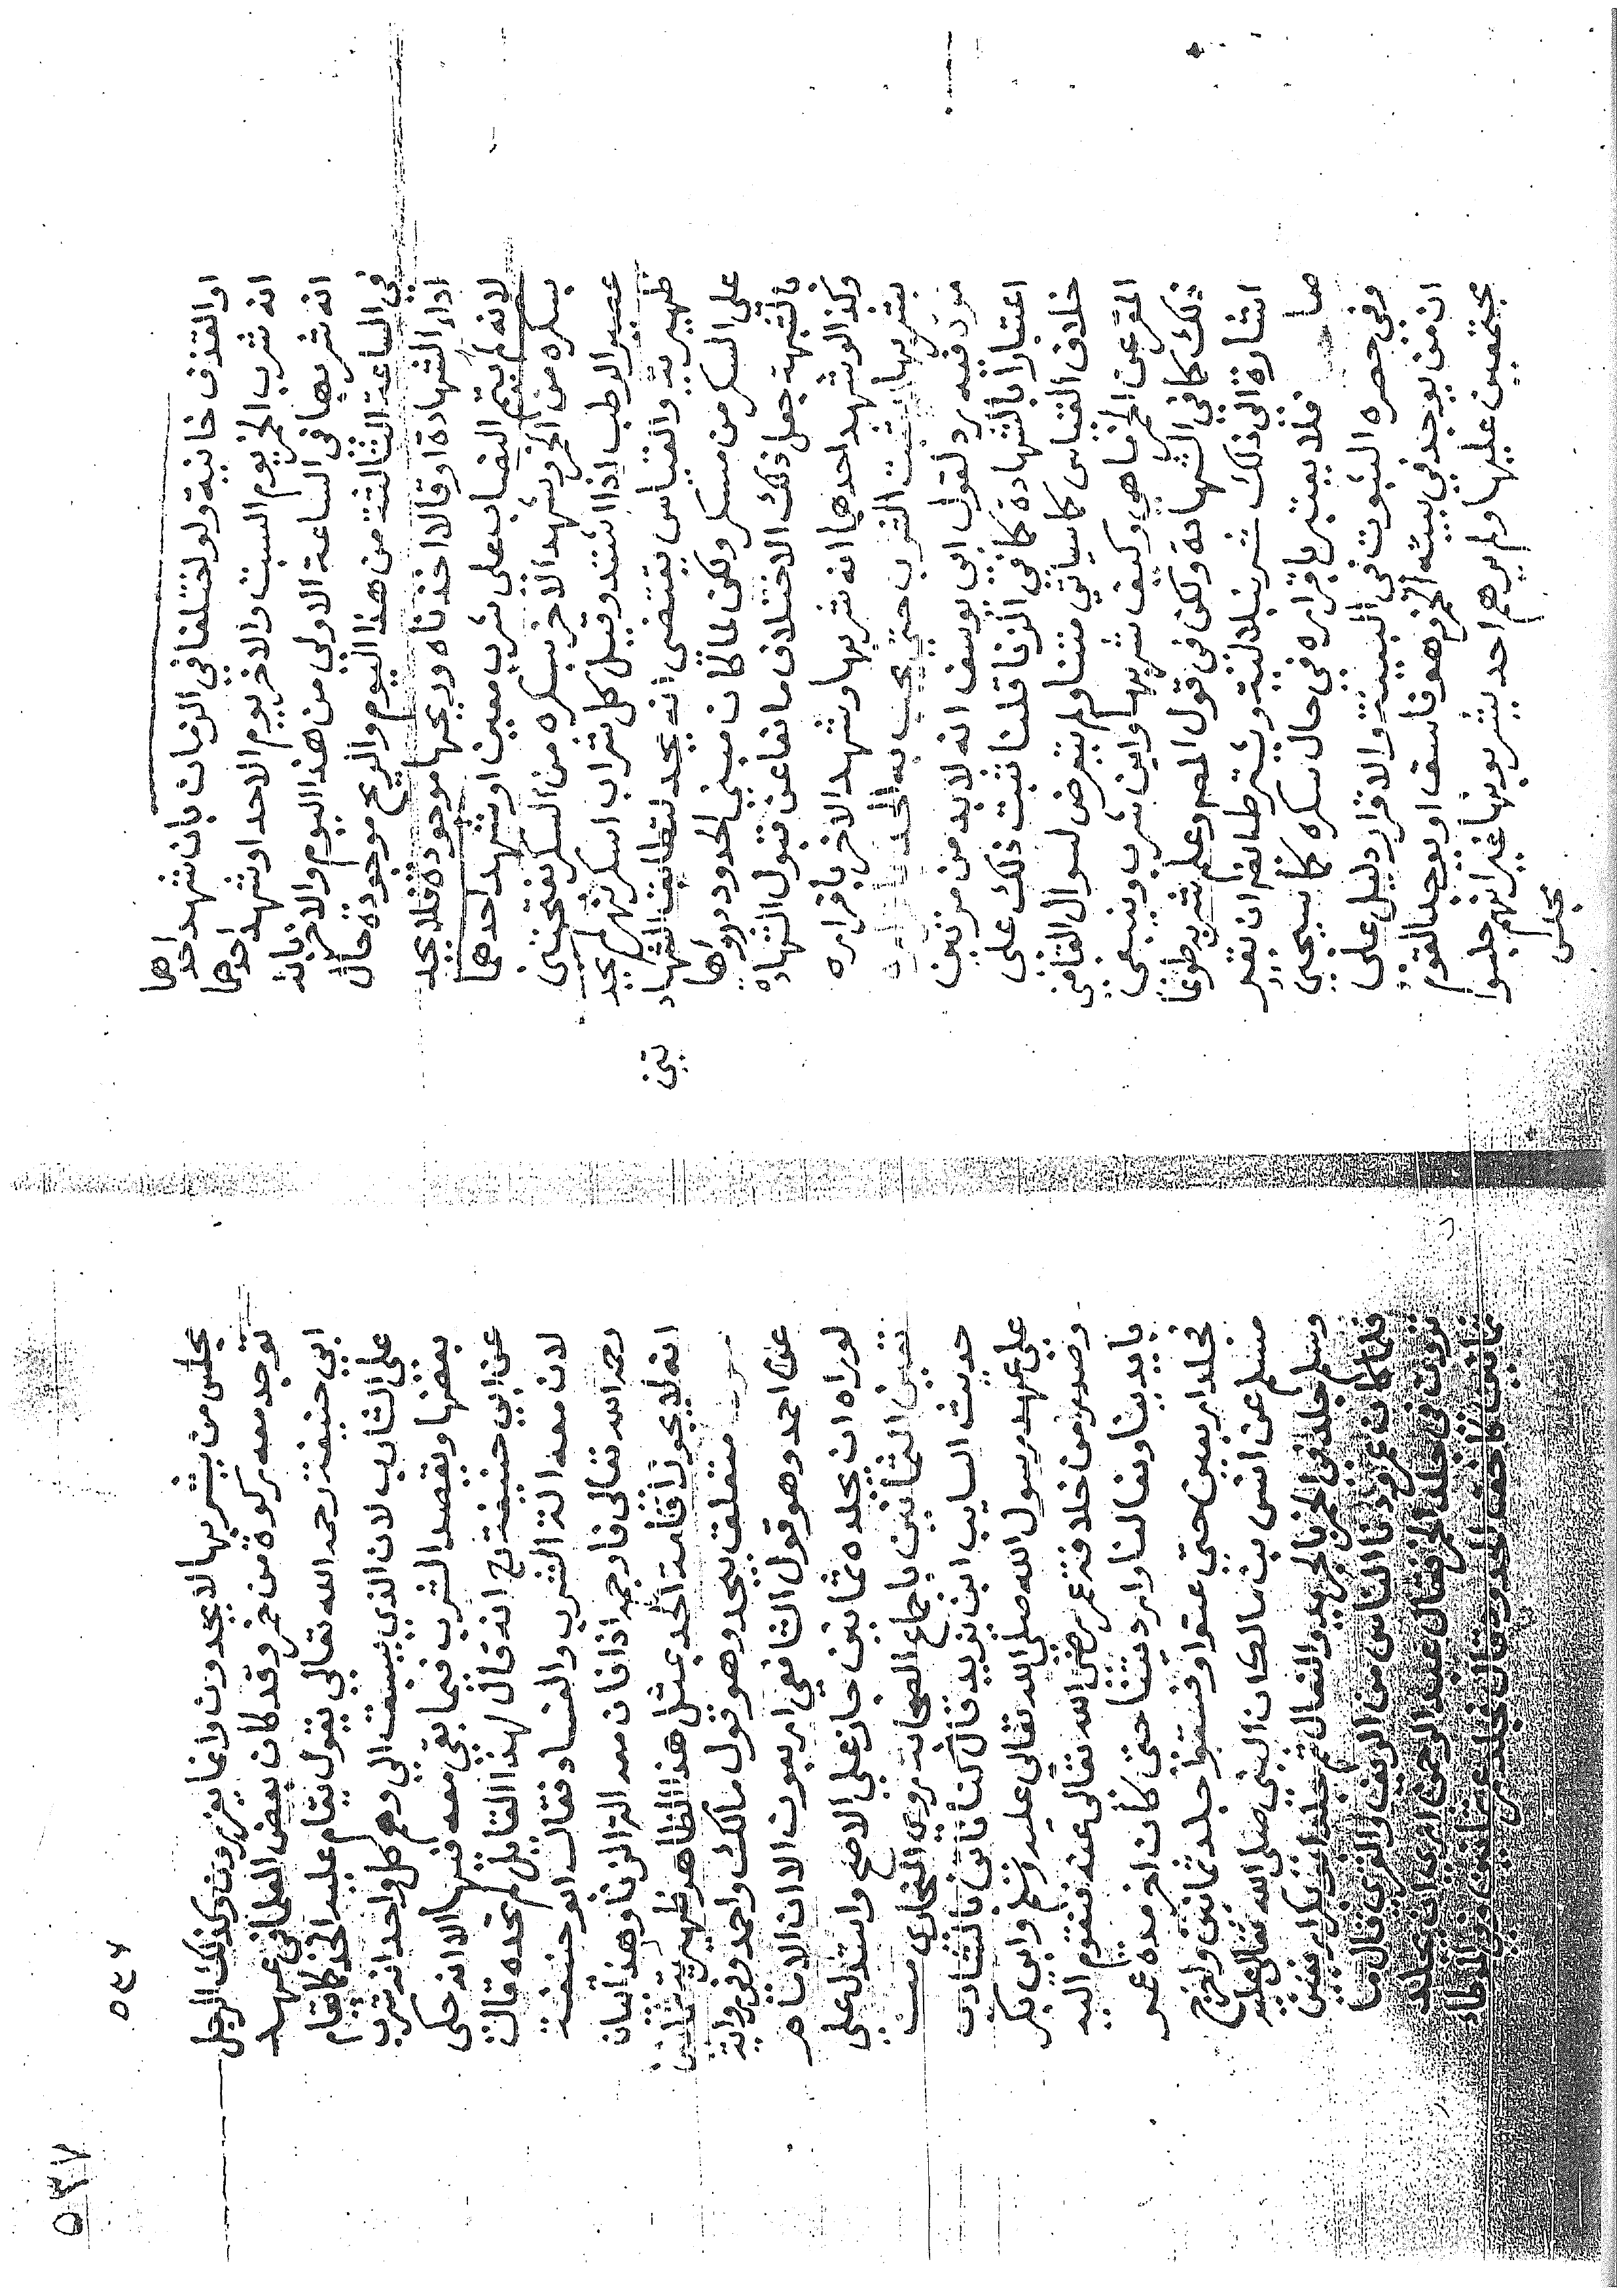 او القذف خانية ولو اختلفا في الزمان بان شهد احدهما
انه شرب الخمر يوم السبت والاخر يوم الاحد او شهد احدهما
انه شربها في الساعة الاولى من هذا اليوم والاخر بانه
في الساعة الثالثة من هذا اليوم والريح موجودة حال
اداء الشهادة او قالا اخذناه وريحها موجودة فلا يحد
لانه لم يتم النصاب على شرب معين او شهد احدهما
بسكره من الخمر وشهد الاخر بسكره من السكر بفتحتين
عصير الرطب اذا اشتد وقيل كل شراب اسكر نهر لم يحد
ظهيرية والقياس يقتضي انه يحد لتطابق الشهاد تين
على السكر من مسكر ولكن لما كان مبنى الحدود درؤها
بالشبهة جعل ذلك الاختلاف مانعا عن قبول الشهادة
وكذا لو شهد احدهما انه شربها وشهد الاخر باقراره
بشربها ثبت الشرب حتى يجب به الحد
مرة فيه رد لقول ابي يوسف انه لا بد من مرتين
اعتبارا بالشهادة كما في الزنا قلنا ثبت ذلك على
خلاف القياس كما سياتي متنا ولم يتعرض لسوال القاضي
المقر عن الخمر ما هي وكيف شربها واين شرب وينبغي
ذلك كما في الشهادة ولكن في قول المص وعلم شربه طوعا
اشارة الى ذلك شرنبلالية ويشترط ان يقر
صا فلا يعتبر باقراره في حال سكره كما سيجي
وفي حصره الثبوت في البينة والاقرار دليل على
ان من يوجد في بيته الخمر هو فاسق او يوجد القوم
مجتمعين عليها ولم يرهم احد يشربونها غير انهم جلسوا
مجلس
٥٣٧
مجلس من يشربها لا يحدون وانما يعزرون وكذلك الرجل
توجد معه ركوة من خمر وقد كان بعض العلما في عهد
ابي حنيفة رحمه الله تعالى يقول يقام عليه الحد كما يقام
على الشارب لان الذي يسبق الى وهم كل واحد انه شرب
بعضها ويقصد الشرب فيما بقي معه فيها الا انه حكي
عن ابي حنيفة رح انه قال لهذا القايل لم تحده قال
لان معه الة الشرب والفساد فقال ابو حنيفة
رحمه الله تعالى فارجمه اذا فان معه الة الزنا وهذا بيان
انه لا يجوز اقامة الحد بمثل هذا الظاهر ظهيرية ثمانين
متعلق بيحد وهو قول مالك واحمد وفي رواية
عن احمد وهو قول الشافعي اربعون الا ان الامام
لو راه ان يجلده ثمانين جاز على الاصح واستدل على
تعين الثمانين باجماع الصحابة روى البخاري من
حديث السايب ابن يزيد قال كنا ناتى بالشارب
على عهد رسول الله صلى الله تعالى عليه وسلم وابي بكر
وصدر من خلافة عمر رضي الله تعالى عنه فنقوم اليه
بايدينا ونعالنا وارديتنا حتى كان اخر مدة عمر
فجلد اربعين حتى عتوا وفسقوا جلد ثمانين واخرج
مسلم عن انس بن مالك ان النبي صلى الله تعالى عليه
وسلم جلد في الخمر بالجريد والنعال ثم جلد ابو بكر اربعين
فلما كان عمر ودنا الناس من الريف والقرى قال ما
ترون في جلد الخمر فقال عبد الرحمن